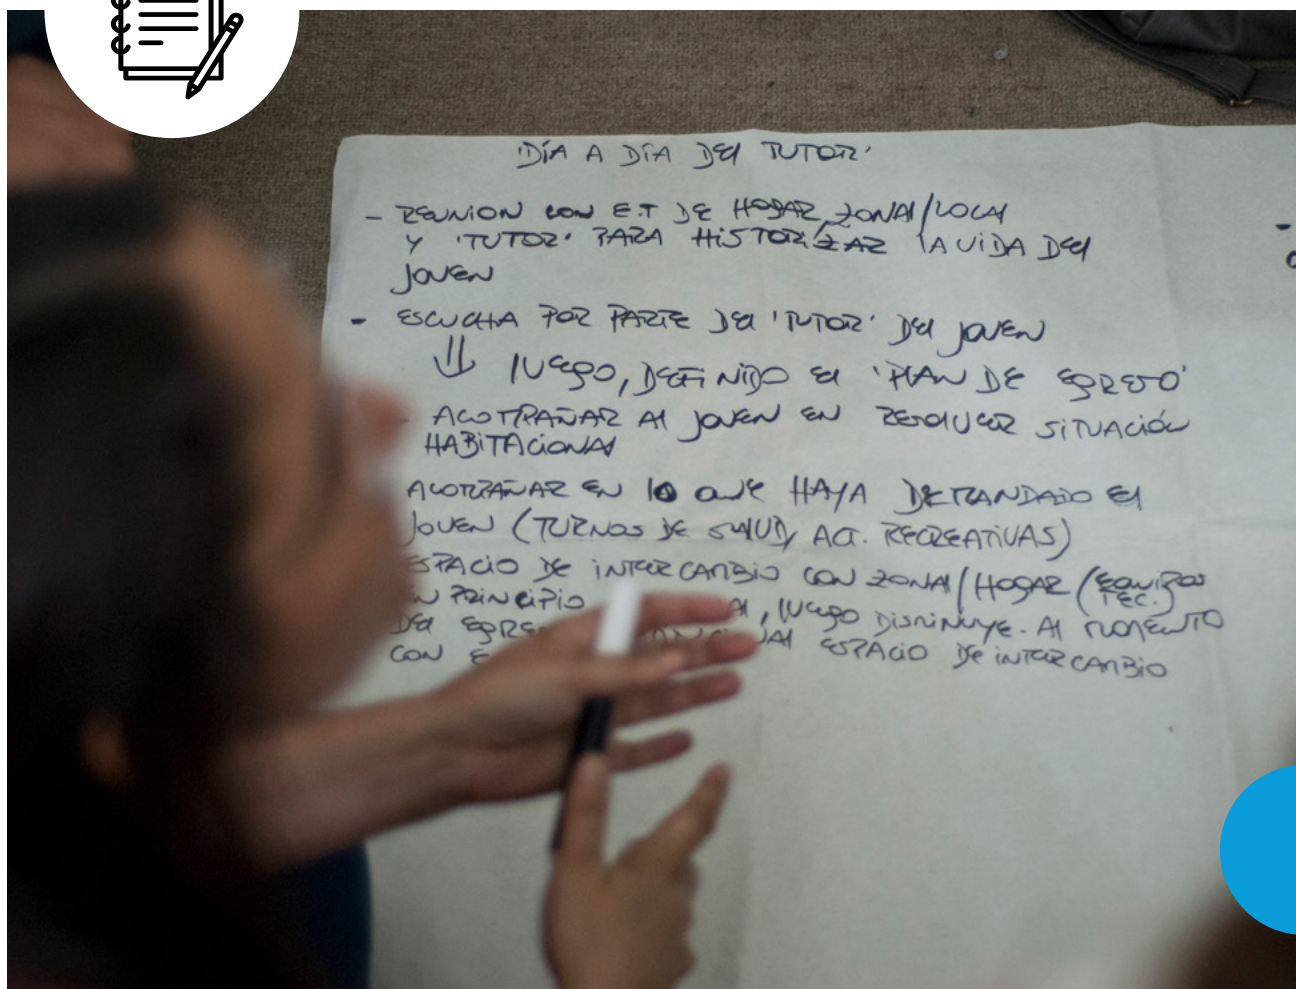 'DÍA A DÍA DEL TUTOR'
- REUNION CON E.T DE HOGAR, ZONAL/LOCAL
Y 'TUTOR' PARA HISTORIZAR LA VIDA DEL
JOVEN
- ESCUCHA POR PARTE DEL 'TUTOR' DEL JOVEN
⇓ LUEGO, DEFINIDO EL 'PLAN DE EGRESO'
- ACOMPAÑAR AL JOVEN EN RESOLVER SITUACIÓN
HABITACIONAL
ACOMPAÑAR EN LO QUE HAYA DEMANDADO EL
JOVEN (TURNOS DE SALUD, ACT. RECREATIVAS)
ESPACIO DE INTERCAMBIO CON ZONAL/HOGAR (EQUIPOS
TEC.)
EN PRINCIPIO LUEGO DISMINUYE. AL MOMENTO
DEL ESPACIO DE INTERCAMBIO
CON